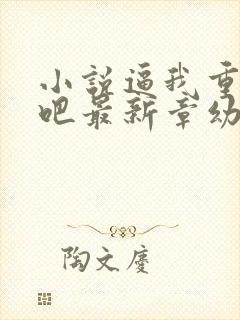 小说逼我重
吧最新章幼
陶文庆